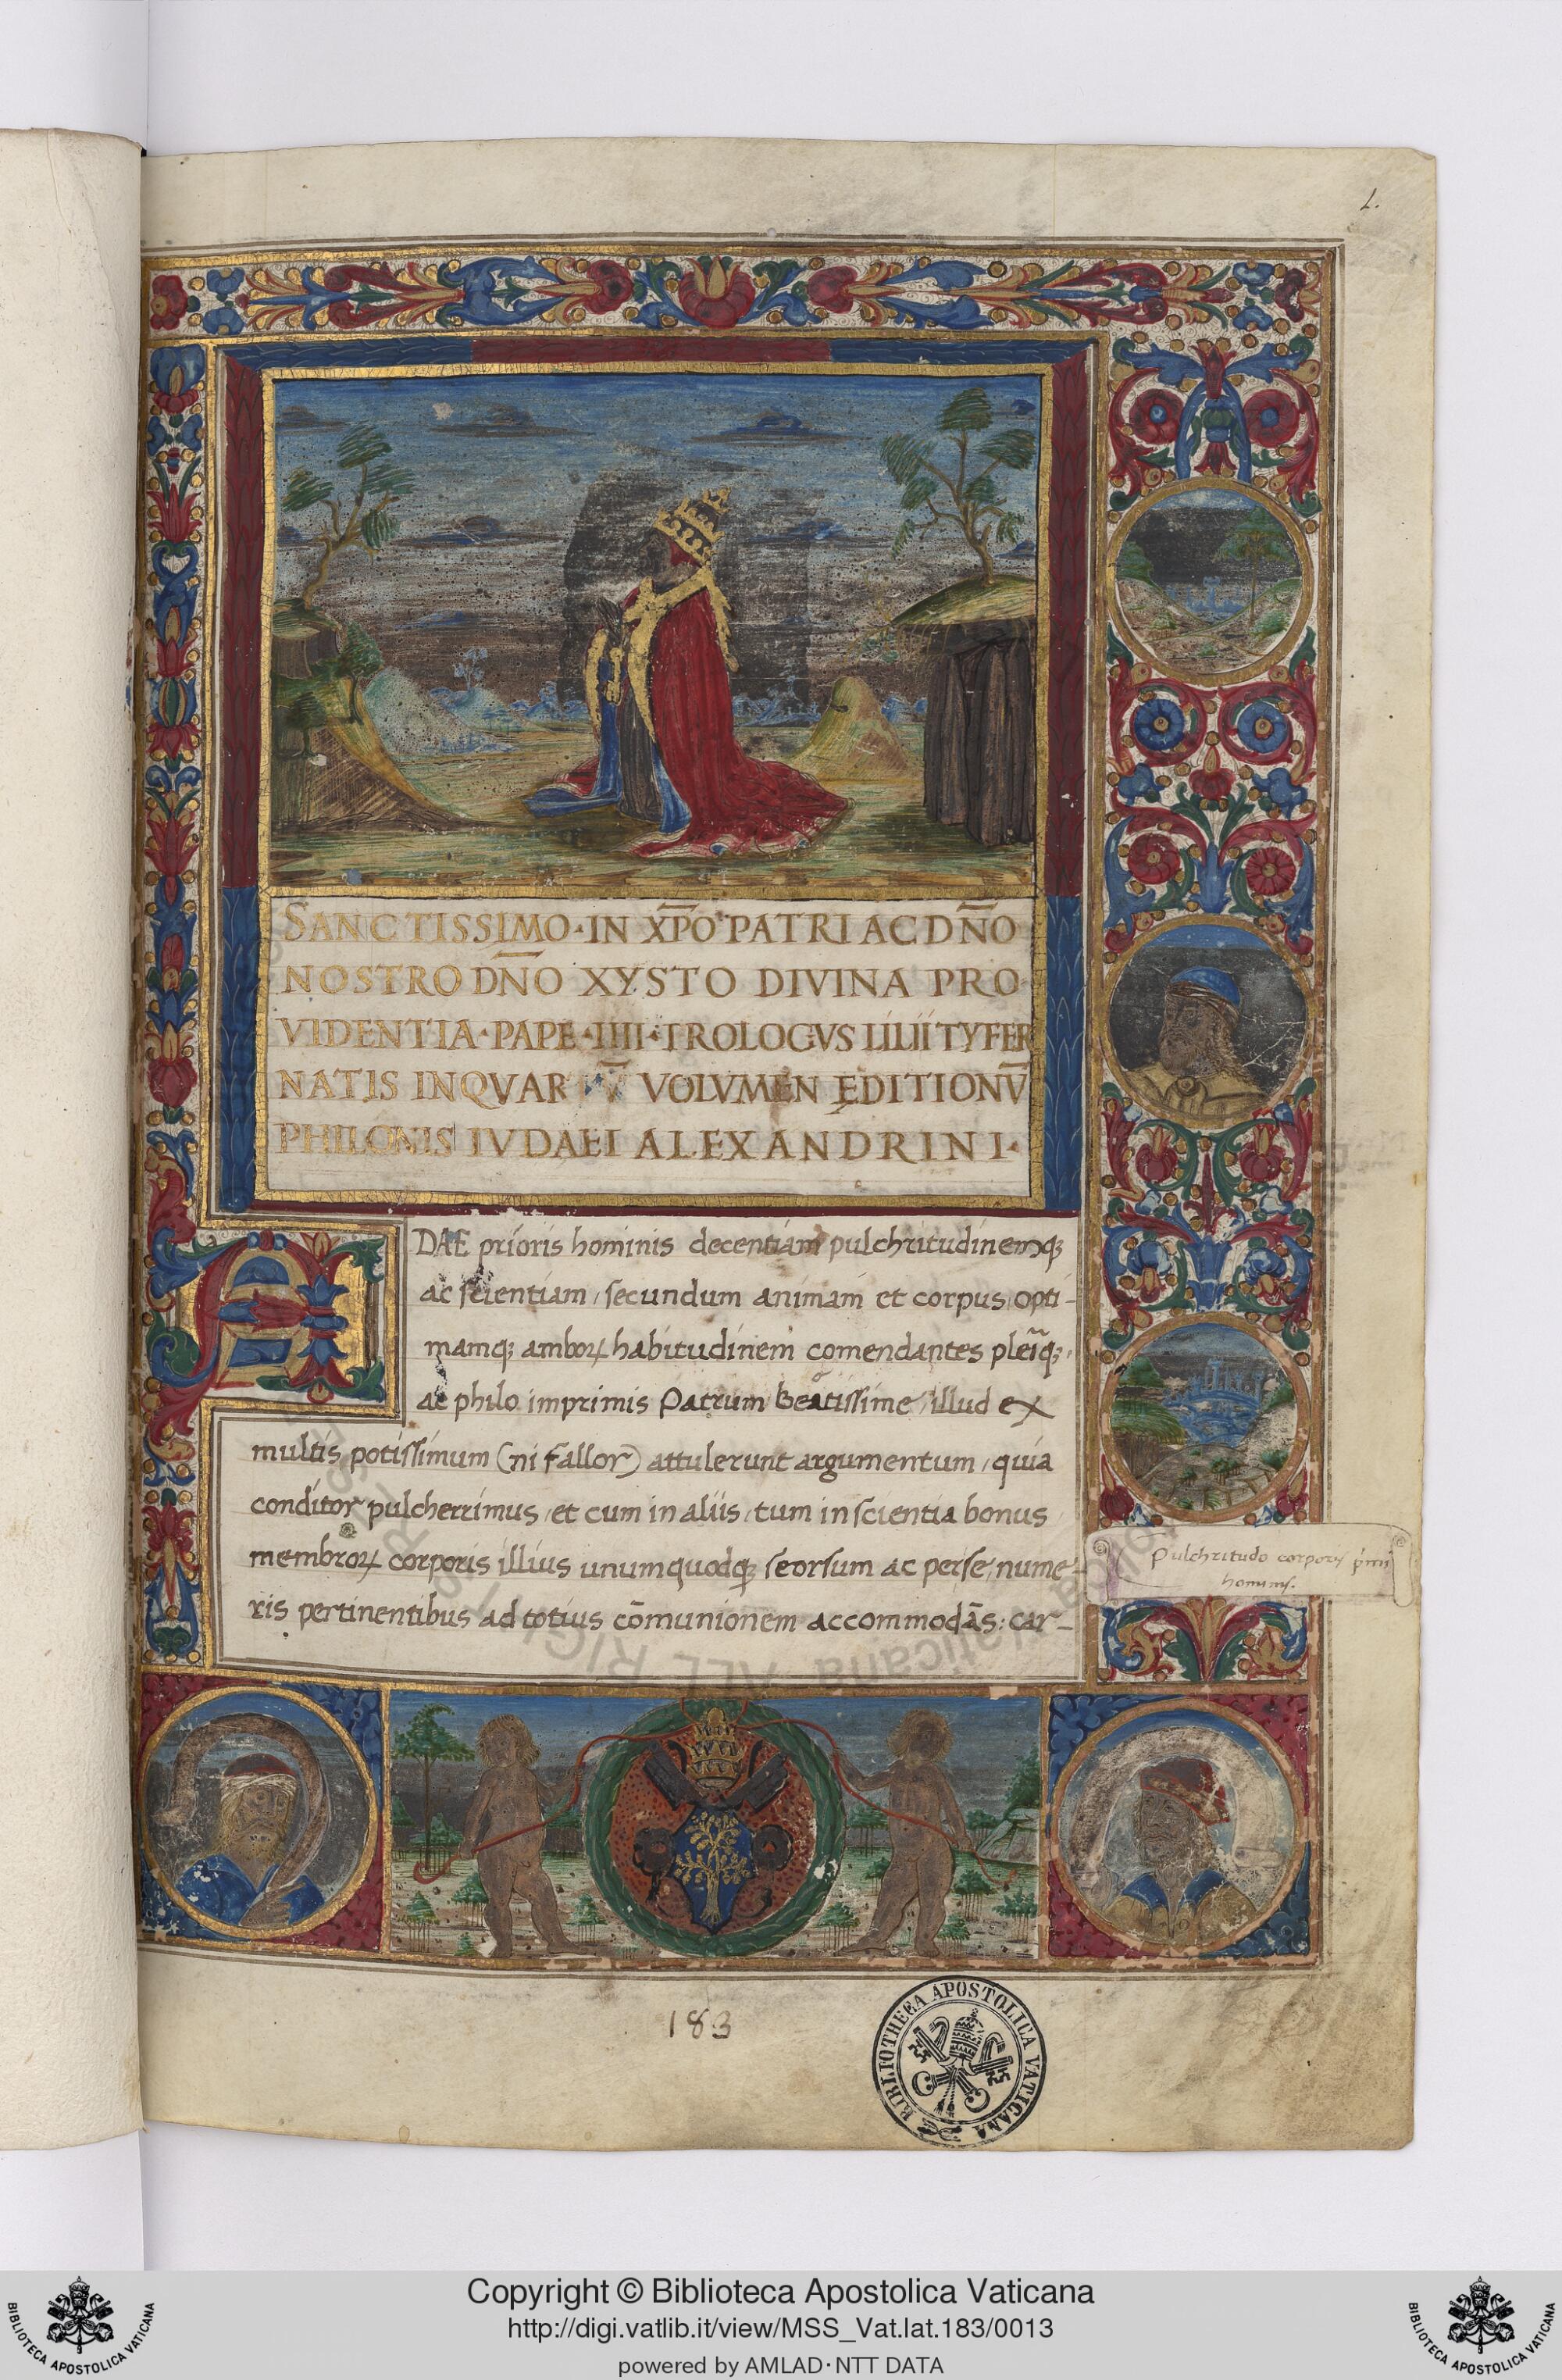 1.
SANCTISSIMO · IN XP̄O PATRI AC DN̄O
NOSTRO DN̄O XYSTO DIVINA PRO
VIDENTIA · PAPE · IIII · PROLOGVS LILII TYFER
NATIS IN QVARTV̄ VOLVMEN EDITIONV̄
PHILONIS IVDAEI ALEXANDRINI ·
ADAE prioris hominis decentiam pulchritudinemq;
ac scientiam, secundum animam et corpus, opti-
mamq; amboꝝ habitudinem comendantes pleriq;,
ac philo imprimis Patrum Beatissime, illud ex
multis potissimum (ni fallor) attulerunt argumentum, quia
conditor pulcherrimus, et cum in aliis, tum in scientia bonus,
membroꝝ corporis illius unumquodq; seorsum ac per se, nume-
ris pertinentibus ad totius cōmunionem accommodās: car-
Pulchritudo corporis p̄mi
hominis.
183
BIBLIOTHECA APOSTOLICA VATICANA
Copyright © Biblioteca Apostolica Vaticana
http://digi.vatlib.it/view/MSS_Vat.lat.183/0013
powered by AMLAD·NTT DATA
BIBLIOTECA APOSTOLICA VATICANA
BIBLIOTECA APOSTOLICA VATICANA